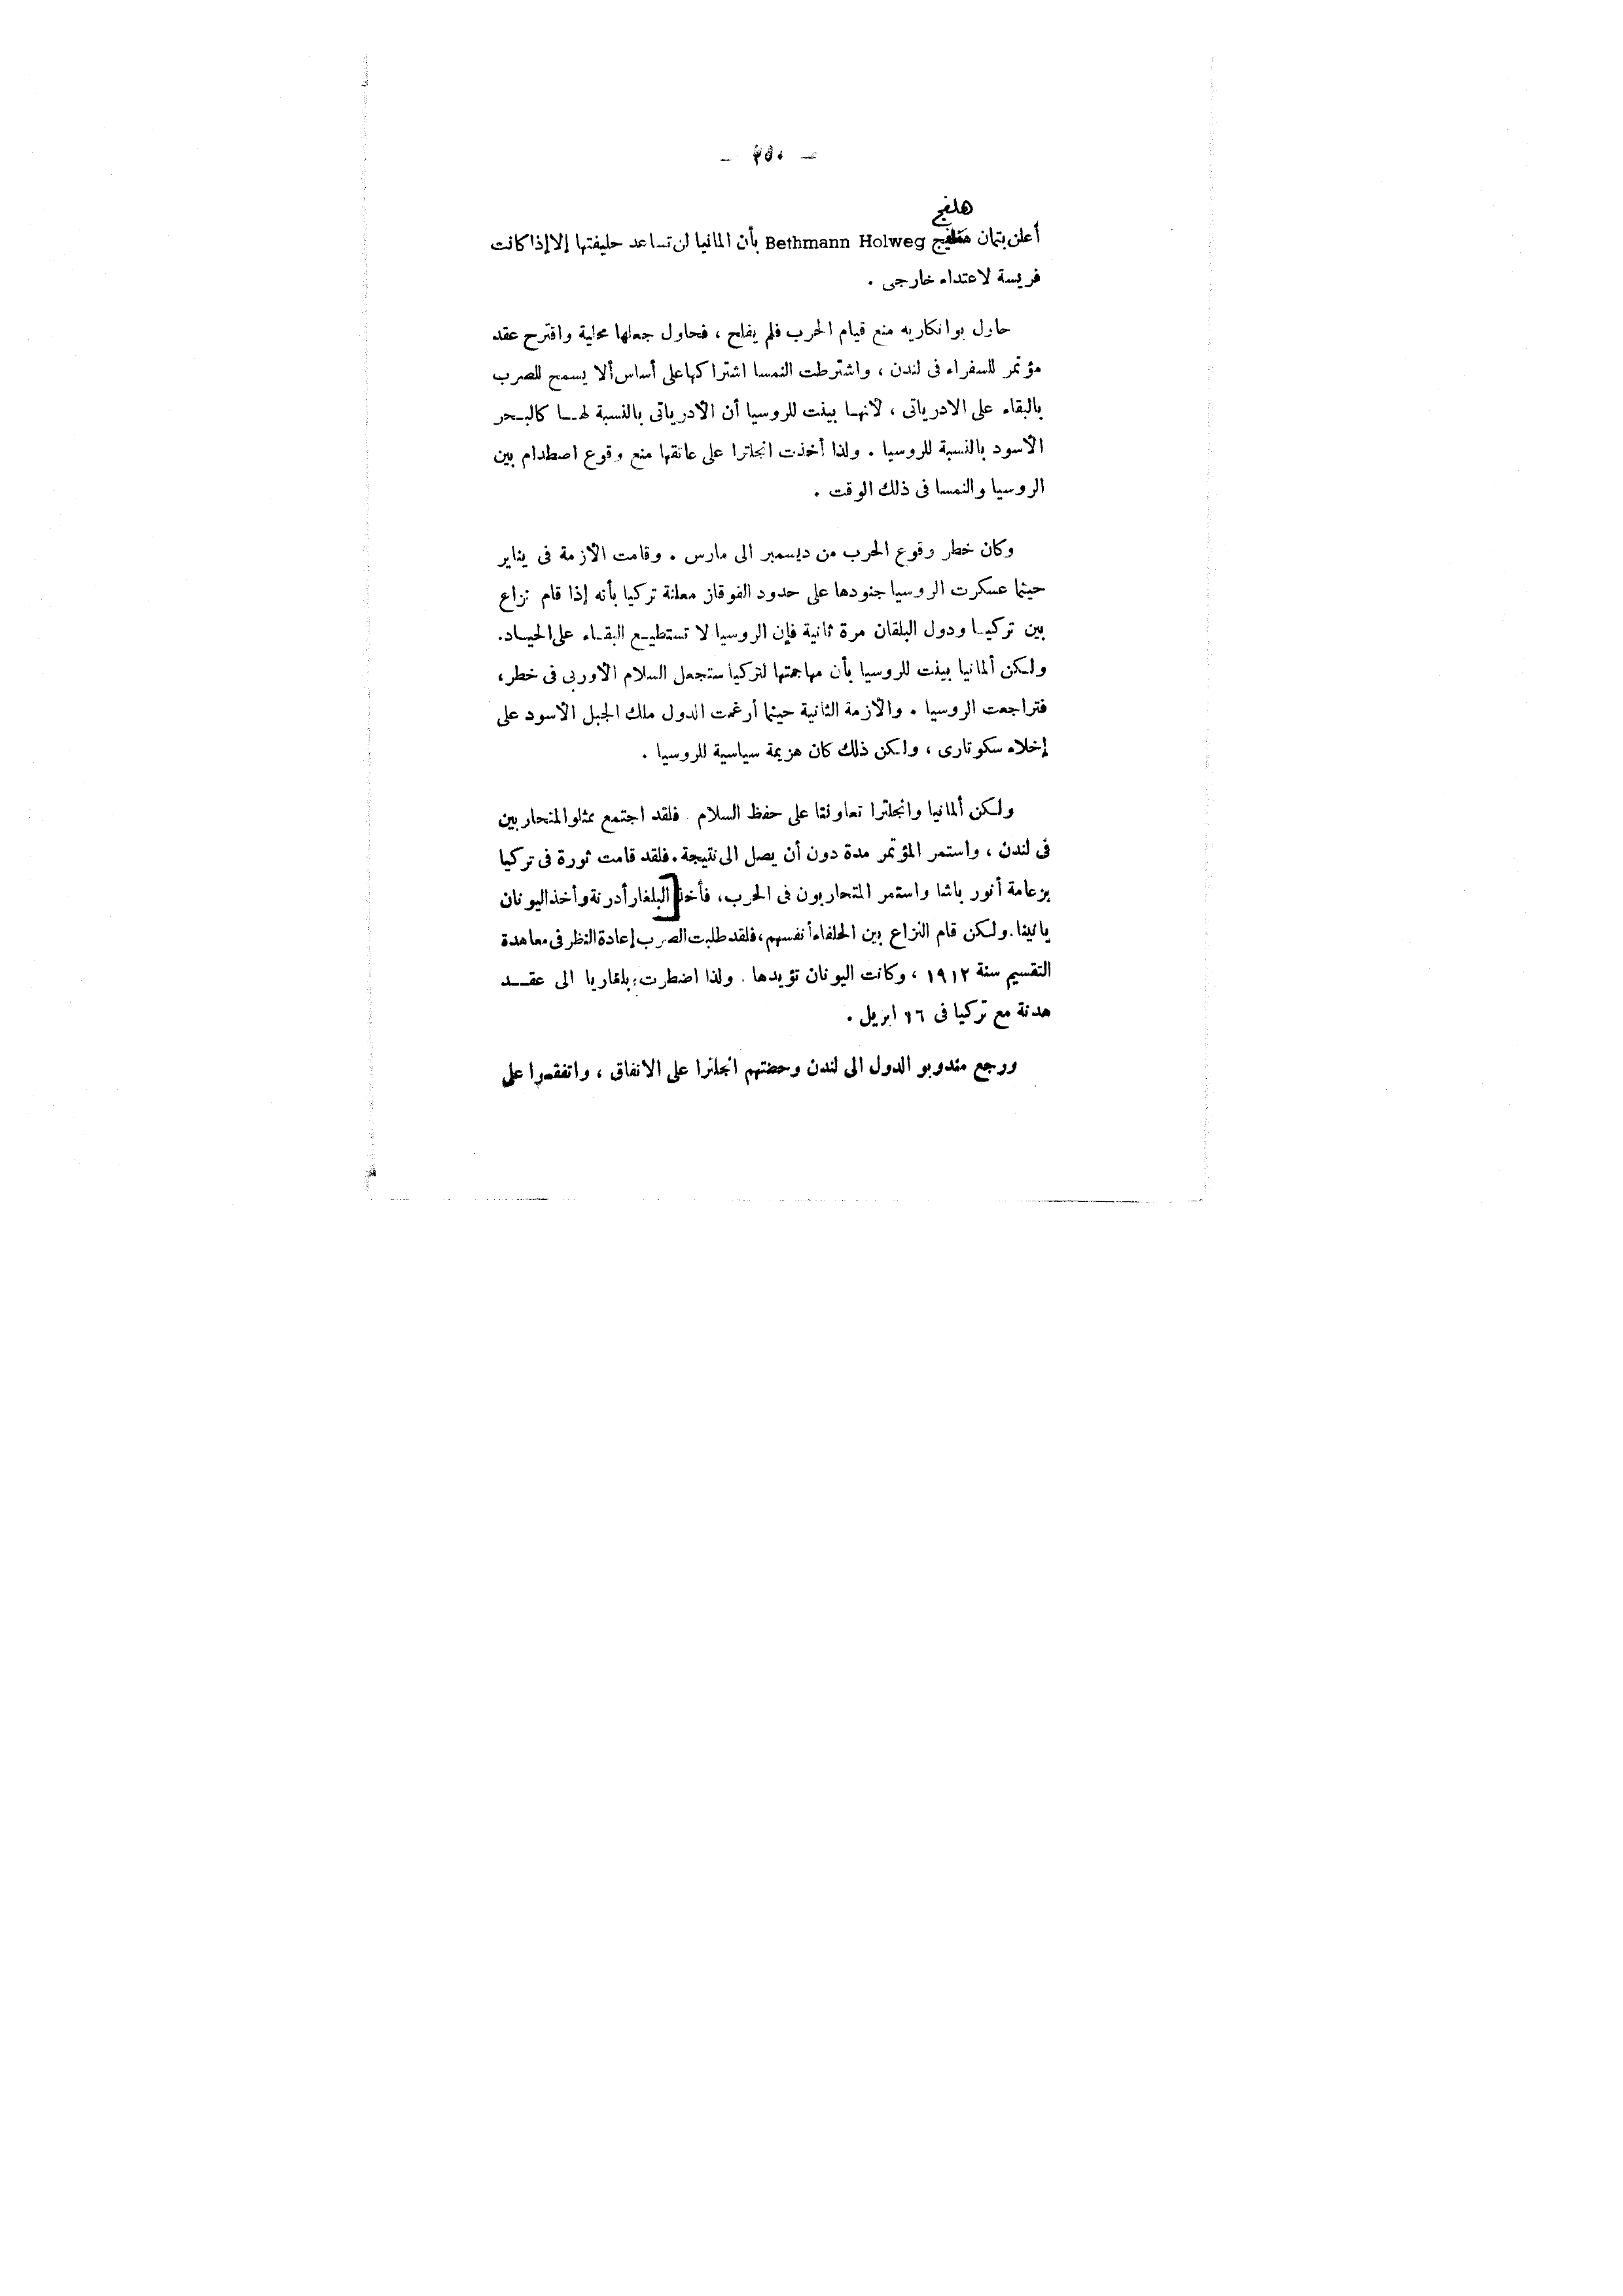 هلفج
أعلن بتمان هلفيج Bethmann Holweg بأن المانيا لن تساعد حليفتها إلا إذا كانت
فريسة لاعتداء خارجى .
حاول بوانكاريه منع قيام الحرب فلم يفلح ، فحاول جعلها محلية واقترح عقد
مؤتمر للسفراء فى لندن ، واشترطت النمسا اشتراكها على أساس ألا يسمح للصرب
بالبقاء على الادرياتى ، لأنهـا بينت للروسيا أن الأدرياتى بالنسبة لهـــا كالبـحر
الأسود بالنسبة للروسيا . ولذا أخذت انجلترا على عاتقها منع وقوع اصطدام بين
الروسيا والنمسا فى ذلك الوقت .
وكان خطر وقوع الحرب من ديسمبر الى مارس . وقامت الأزمة فى يناير
حينما عسكرت الروسيا جنودها على حدود القوقاز معلنة تركيا بأنه إذا قام نزاع
بين تركيـا ودول البلقان مرة ثانية فإن الروسيا لا تستطيـع البقـاء على الحيـاد.
ولكن ألمانيا بينت للروسيا بأن مهاجمتها لتركيا ستجعل السلام الأوربى فى خطر،
فتراجعت الروسيا . والأزمة الثانية حينما أرغمت الدول ملك الجبل الأسود على
إخلاء سكوتارى ، ولكن ذلك كان هزيمة سياسية للروسيا .
ولكن ألمانيا وانجلترا تعاونتا على حفظ السلام . فلقد اجتمع ممثلو المتحاربين
فى لندن ، واستمر المؤتمر مدة دون أن يصل الى نتيجة . فلقد قامت ثورة فى تركيا
بزعامة أنور باشا واستمر المتحاربون فى الحرب، فأخذ البلغار أدرنة وأخذ اليونان
يانينا. ولكن قام النزاع بين الحلفاء أنفسهم، فلقد طلبت الصرب إعادة النظر فى معاهدة
التقسيم سنة ١٩١٢ ، وكانت اليونان تؤيدها . ولذا اضطرت بلغاريا الى عقـــد
هدنة مع تركيا فى ١٦ ابريل .
ورجع مندوبو الدول الى لندن وحضتهم انجلترا على الاتفاق ، واتفقـوا على